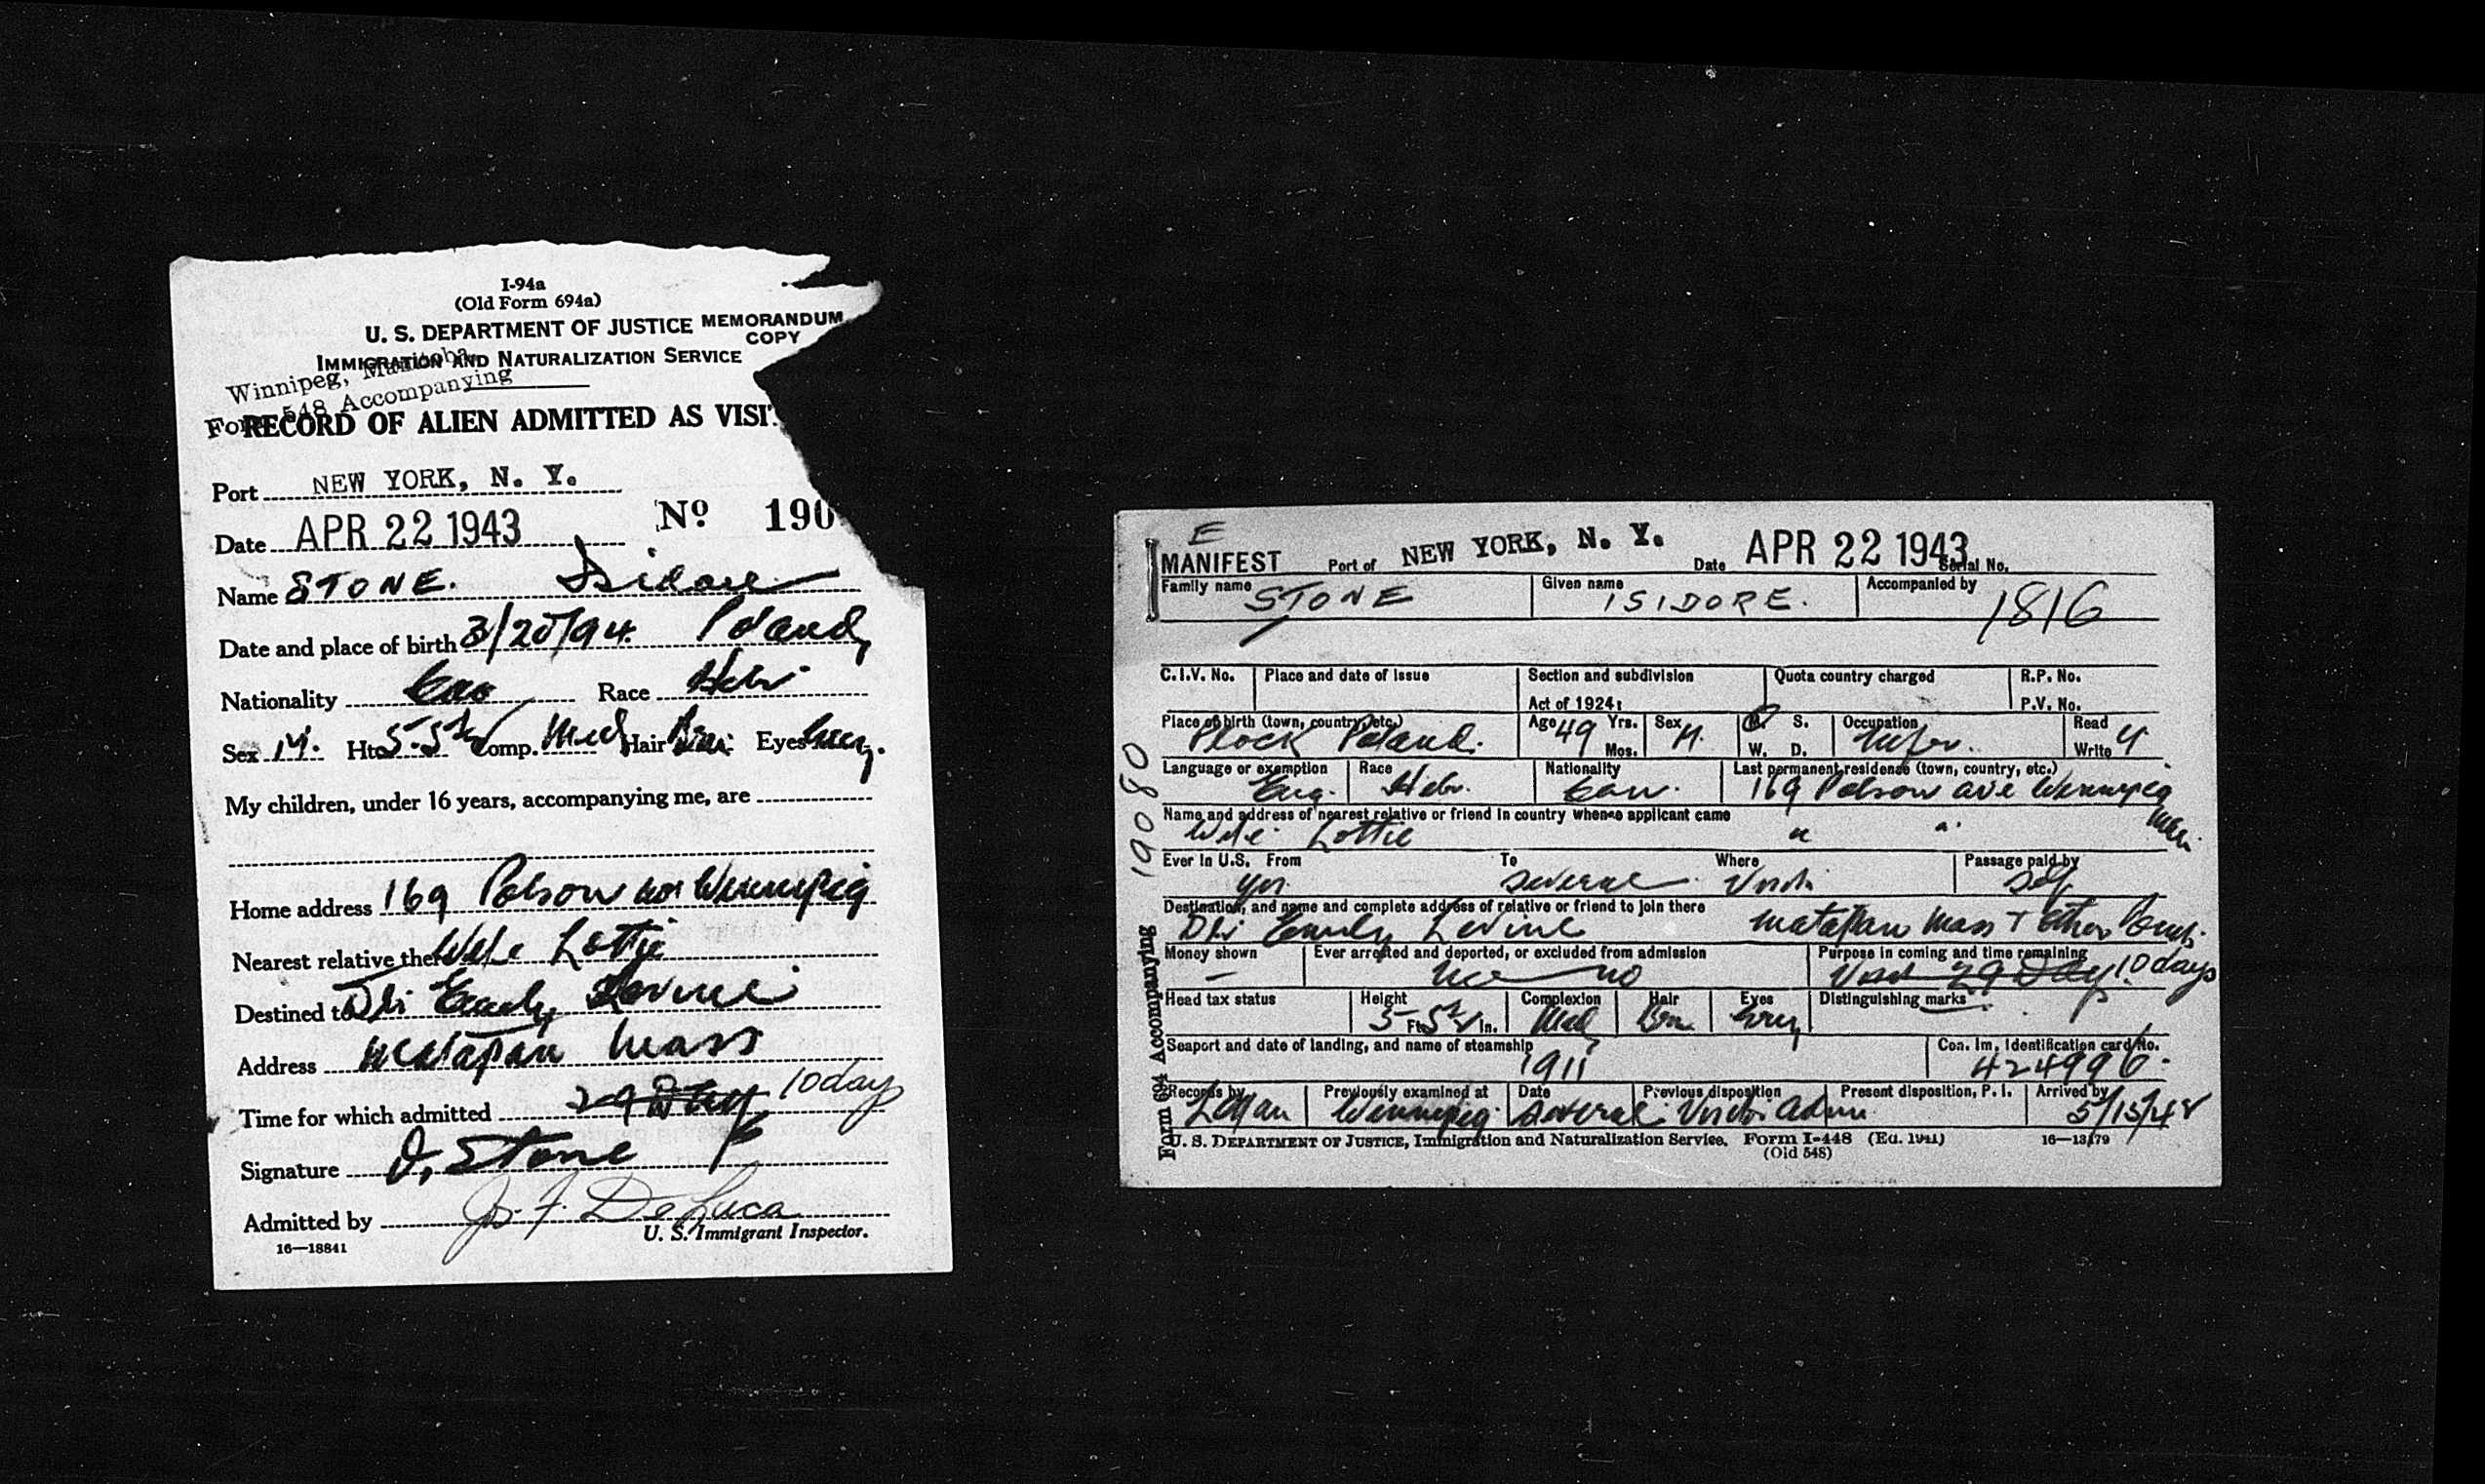 I-94a
(Old Form 694a)
U. S. DEPARTMENT OF JUSTICE MEMORANDUM COPY
IMMIGRATION AND NATURALIZATION SERVICE
Winnipeg, Manitoba
Form 548 Accompanying
RECORD OF ALIEN ADMITTED AS VISIT
Port NEW YORK, N. Y.
Nº 190
Date APR 22 1943
Name STONE. Isidore
Date and place of birth 3/20/94 Poland
Nationality Can Race Heb.
Sex M. Ht. 5-5½ Comp. Med Hair Brn. Eyes Grey.
My children, under 16 years, accompanying me, are
Home address 169 Polson Winnipeg
Nearest relative there Wife Lottie
Destined to Emily Levine
Address Matapan Mass
Time for which admitted 29 Days 10 days
Signature I. Stone
Admitted by Js. F. DeLuca
U. S. Immigrant Inspector.
16—18841
E
MANIFEST Port of NEW YORK, N. Y. Date APR 22 1943 Serial No.
Family name STONE Given name ISIDORE. Accompanied by
1816
C.I.V. No. Place and date of issue Section and subdivision Quota country charged R.P. No.
Act of 1924: P.V. No.
Place of birth (town, country, etc.) Plock Poland. Age 49 Yrs. Mos. Sex M. M. S. W. D. Occupation Read Write Y
Language or exemption Eng. Race Hebr. Nationality Can. Last permanent residence (town, country, etc.) 169 Polson ave Winnipeg Man.
Name and address of nearest relative or friend in country whence applicant came
Wife Lottie " "
Ever in U.S. From Yes To Several Where Passage paid by Self
Destination, and name and complete address of relative or friend to join there
Emily Levine Matapan Mass + other
Money shown — Ever arrested and deported, or excluded from admission no Purpose in coming and time remaining Visit 29 Days 10 days
Head tax status Height 5 Ft. 5½ In. Complexion Med Hair Brn Eyes Grey Distinguishing marks
Seaport and date of landing, and name of steamship 1911 Con. Im. Identification card No. 424996.
Records by Previously examined at Winnipeg Date Several Previous disposition Present disposition, P. I. Arrived by
5/15/48
U. S. DEPARTMENT OF JUSTICE, Immigration and Naturalization Service. Form I-448 (Ed. 1941) 16—13179
(Old 548)
Form 694 Accompanying 19080